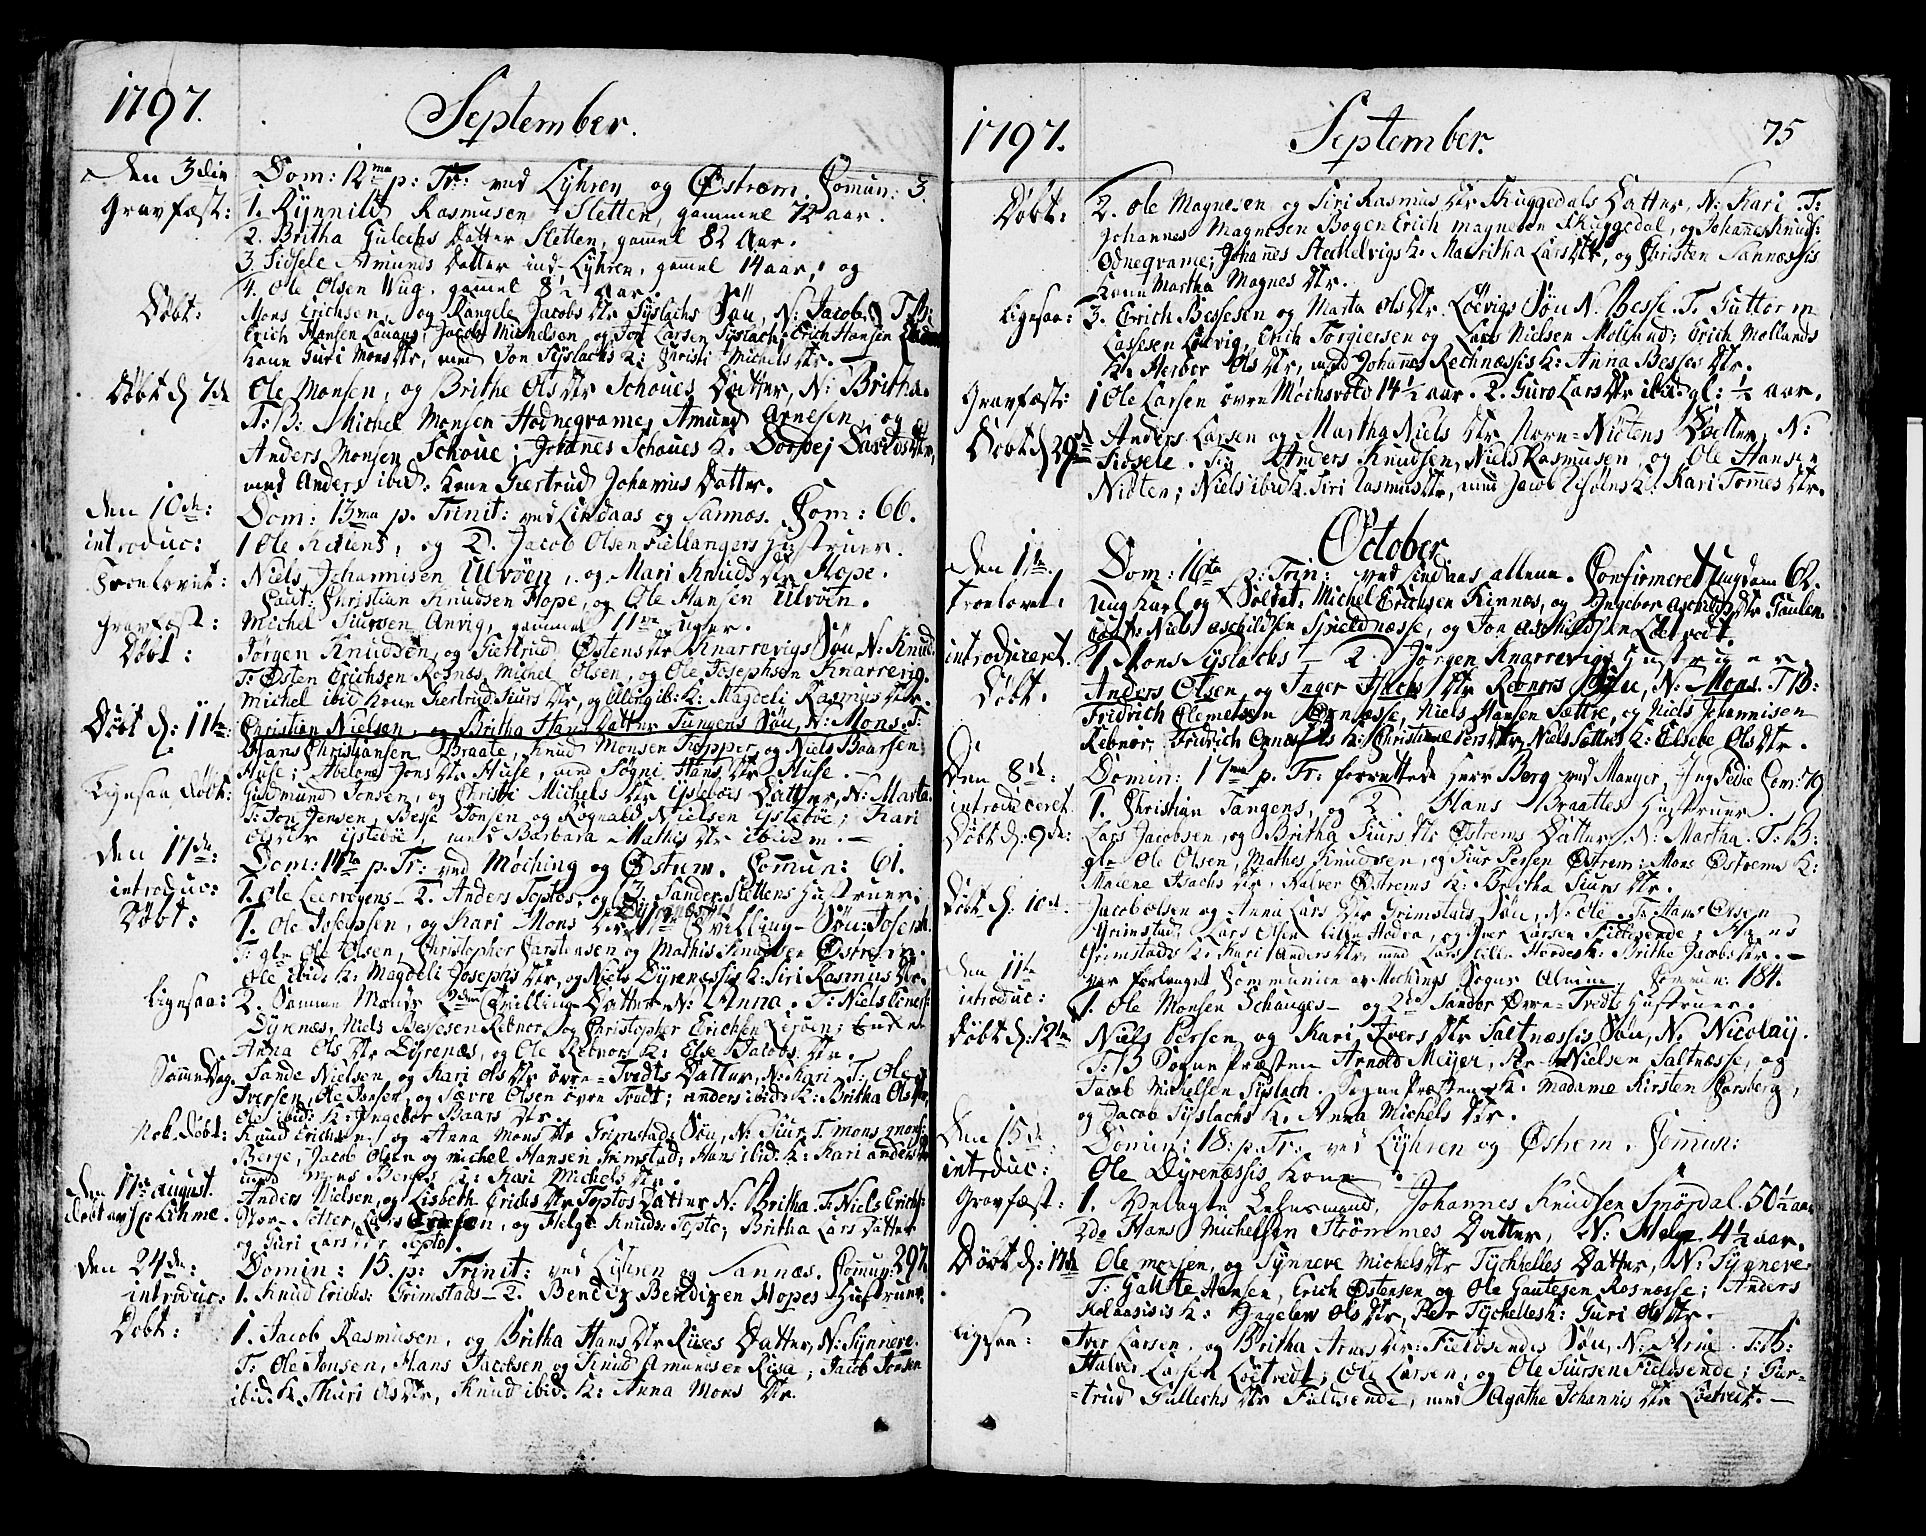 1797. September.
Den 3die Dom: 12ma p: Tr: ved Lyhren og Østrem, Comun: 3
Gravfæst: 1. Rynnild Rasmusen Sletten, gammel 72 aar.
2. Britha Gulechs Datter Sletten, gaml 82 Aar.
3. Sidsele Amunds Datter ind Lyhren, gaml 14 aar, og
4. Ole Olsen Wug, gaml 8 1/2 Aar.
Døbt: Mons Erichsen, og Rangele Jacobs Dtr Syslachs Søn, N: Jacob. T B:
Erich Hansen, Jacob Michelsen og Jon Larsen Syslach, Erich Hansen
kone Guri Mons Dtr, med Jon Syslachs K: Christi Michels Dtr.
Døbt d. 7de Ole Monsen, og Brithe Ols Dtr Schoues Datter, N: Britha.
T: B: Michel Monsen Hodnegrame, Amund Arnesen, og
Anders Monsen Schoue; Johanes Schoues K. Dorthej Davids Dtr,
med Anders ibid: kone Giertrud Johannis Datter.
Den 10de: Dom: 13ma p. Trinit: ved Lindaas og Sannæs. Com: 66.
introduc: 1 Ole Keilens, og 2. Jacob Olsen Fiellangers Hustruer.
Troelovet: Niels Johannisen Ulvøen, og Mari Knuds Dtr Hope.
Caut: Christian Knudsen Hope, og Ole Hansen Ulvøen.
Gravfæst: Michel Siursen Anvig, gammel 11 uger.
Døbt: Jørgen Knudsen, og Giertrud Østens Dtr Knarrevigs Søn N: Knud.
T: Østen Erichsen Rosnæs, Michel Olsen, og Ole Josephsen Knarrevig.
Michel ibid kone Giertrud Siurs Dtr, og ib: K: Magdeli Rasmus Dtr.
Døbt d: 11te: Christian Nielsen, og Britha Hans Datter Tangens Søn, N: Mons. T:
Hans Christiansen Braate, Knud Monsen Tepper, og Niels Baarsen
Huse; Abelone Jons Dtr Huse, med Søgni Hans Dtr Huse.
Ligesaa Døbt: Guldmund Jonsen, og Christi Michels Dtr Ijslebøes Datter, N: Marta.
T: Jon Jensen, Besse Jonsen og Rognald Nielsen Ijslebøe; Kari
Ols Dtr Ijslebøe med Barbara Mathis Dtr ibidem.
Den 17de: Dom: 14ta p. Tr: ved Moching og Østrem. Comun: 61.
introduc: 1. Ole Leervogens — 2. Anders Toptos, og 3. Sander Slettens Hustruer;
Døbt: 1. Ole Josephsen, og Kari Mons Dtr Tvilling Søn: Joseph.
T: gle Ole Olsen, Christopher Carstensen og Mathis Knudsen Østrem.
Ole ibid: K: Magdeli Josephs Dtr, og Niels Dyrenæssis K: Siri Rasmus Dtr.
ligesaa: 2. Samme Mænds 2den Tvilling Datter N: Anna. T: Niels
Dyrnæs, Niels Bessesen Rebnor og Christopher Erichsen
Anna Ols Dtr Dyrenæs, og Ole Rebnors K: Else Jacobs Dtr.
Samme Dag. Sande Nielsen, og Kari Ols Dtr øvre-Tvedts Datter, N: Kari T: Ole
Iversen, Ole Jonsen, og Sævre Olsen øvre Tvedt; anders ibid: K: Britha Ols Dtr,
Ole ibid: K: Ingebor Baars Dtr.
Nok Døbt: Knud Erichsen, og Anna Mons Dtr Grimstads Søn, N: Siur T: mons mons:
Berge, Jacob Olsen og Michel Hansen Grimstad; Hans ibid: K: Kari anders Dtr
med Mons Berges K: Kari Michels Dtr.
Den 17de august. Anders Nielsen, og Lisbeth Erichs Dtr Toptos Datter N: Britha. T: Niels Erichs:
døbt av Hr: Lihme. Sætter, Lars, og Helge Knuds: Topto; Britha Lars Datter
og Guri Lars Dtr Topto.
Den 24de: Domin: 15. p: Trinit: ved Lyhren og Sannæs. Comun: 297.
introduc: 1. Knud Erichs: Grimstads — 2. Bendix Bendixen Hopes Hustruer
Døbt: 1. Jacob Rasmusen, og Britha Hans Dtr Rises Datter, N: Synneve.
T: Ole Jonsen, Hans Jacobsen og Knud Amundsen Risa; Jacob Jonsen
ibid: K. Thuri Ols Dtr, Knud ibid: K: Anna Mons Dtr
1797. September. 75
Døbt: 2. Ole Magnesen og Siri Rasmus Dtr Skuggedals Datter, N: Kari. T:
Johannes Magnesen Bogen Erich magnesen Skuggedal, og Johannes Knuds:
Odnegrame; Johannes Hechelvigs K. Maritha Lars Dtr, og Christen Sannæssis
kone Martha Magnes Dtr.
Ligesaa: 3. Erich Bessesen og Marta Ols Dtr. Løevigs Søn N: Besse. T: Guttorm
Lassesen Løevig, Erich Torgiersen og Lars Nielsen Molland; Erich Mollands
K. Herbor Ols Dtr, med Johannes Rechnæssis K: Anna Besses Dtr.
Gravfæst: 1 Ole Larsen øvre Mochsvold 14 1/2 aar. 2. Guro Lars Dtr ibid: gl: 1/2 aar.
Døbt d 29de Anders Larsen og Martha Niels Dtr Norre-Nittens Datter, N:
Sidsele. T: Anders Knudsen, Niels Rasmusen og Ole Hansen
Nidten; Niels ibid K. Siri Rasmus Dtr, med Jacob K: Kari Tomes Dtr.
October
Den 1te. Dom: 16ta p: Trin: ved Lindaas allene. Confirmeret Ungdom 62.
Troelovet: Ung Karl og Soldat: Michel Erichsen Kinnes, og Ingebor Aschilds Dtr Faulen
Caut: Niels Aschildsen Spieldnæsse, og Jon Aschildsen Løtvedt.
introduceret. 1. Mons Syslachs — 2. Jørgen Knarrevigs Hustruer
Døbt. Anders Olsen, og Inger Isachs Dtr Rebnors Søn, N: Mons. T B:
Fridrich Clemetsen Ørnæsse, Niels Hansen Sættre, og Niels Johannisen
Rebnor, Fridrich Ornæssis K: Christiane Pers Dtr, Niels Sættres K: Elsebe Ols Dtr.
Den 8de: Domin: 17ma p. Tr: forrettede Herr Berg ved Manger, Com: 79
introduceret 1. Christian Tangens, og 2. Hans Braattes Hustruer.
Døbt d: 9de: Lars Jacobsen, og Britha Siurs Dtr Østrems Datter, N: Martha. T: B:
gle Ole Olsen, Mathes Knudsen, og Siur Persen Østrem: Mons Østrems K:
Malene Isachs Dtr, Halver Østrems K: Britha Siurs Dtr.
Døbt d: 10de. Jacob Olsen og Anna Lars Dtr Grimstads Søn, N: Ole. T: Hans Olsen
Grimstad, Lars Olsen lille Hodna, og Iver Larsen Fieldsende; Hans
Grimstads K: Kari Anders Dtr, med Lars lille Hordes K: Brithe Jacobs Dtr.
Den 11te var forlanget Communion av Mochings Sogns Almue, Comun: 184.
introduc: 1. Ole Monsen Schauges — og 2de Sander Øvre-Tvedts Hustruer.
Døbt d: 12te Niels Persen og Kari Ivers Dtr Saltnæssis Søn, N: Nicolaij.
T: B Sogne Præsten Arnold Meijer, Per Nielsen Saltnæsse, og
Jacob Michelsen Syslach. Sogne Præstens K. Madame Kirsten Forsberg,
og Jacob Syslachs K. Anna Michels Dtr.
Den 15de Domin: 18. p. Tr: ved Lyhren og Østrem. Comun:
introduc: Ole Dyrenæssis kone
Gravfæst: 1. Velagte Lehnsmand, Johannes Knudsen Spørdal. 50 1/2 aar
2de Hans Michelsen Strømmes Datter, N: 4 1/2 aar.
Døbt d: 17de Ole monsen, og Synneve Michels Dtr Tychhelles Datter, N: Synneve.
T: Gautte Hansen, Erich Østensen og Ole Gautesen Rosnesse; Anders
Kolaasisis K: Ingeler Ols Dtr, Peer Tychelles K: Guri Ols Dtr.
ligesaa: Iver Larsen, og Britha Arnes Dtr: Fieldsendes Søn, N: Arne. T: B:
Halver Larsen Løetvedt; Ole Larsen, og Ole Siursen Fieldsende; Gur-
-trud Gullechs Dtr Fieldsende, med Agathe Johannis Dtr Løetvedt.